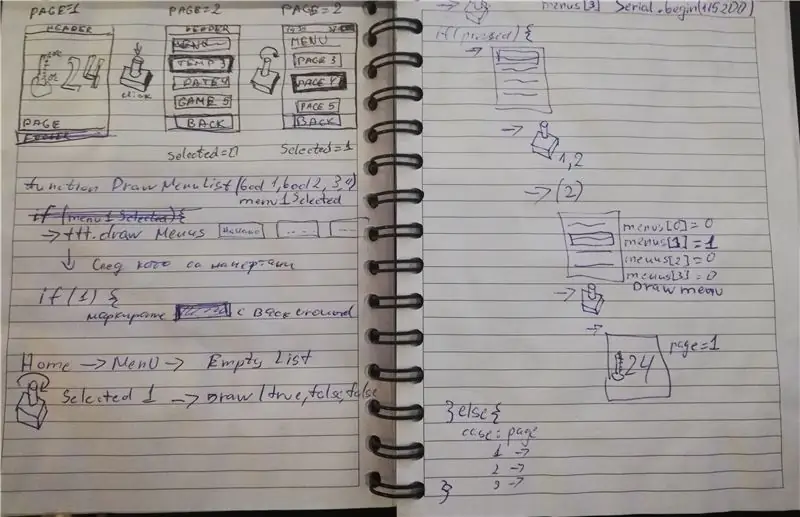 PAGE=1
HEADER
24
PAGE
FOOTER
click
PAGE=2
HEADER
MENU
TEMP 3
DATE 4
GAME 5
BACK
Selected=0
PAGE=2
MENU
PAGE 3
PAGE 4
PAGE 5
BACK
Selected=1
function DrawMenuList(bool 1, bool 2, 3, 4)
menu1Selected
if (menu1Selected){
→ ttt.draw Menus
↓ След като са начертани
if(1) {
маркираме с Background
Home → Menu → Empty List
Selected 1 → Draw(true,false,false
menus[3] Serial.begin(115200)
if(pressed){
→
→ 1,2
→ (2)
menus[0]=0
menus[1]=1
menus[2]=0
menus[3]=0
Draw menu
→
→
24
page=1
}else{
case: page
1 →
2 →
3 →
}